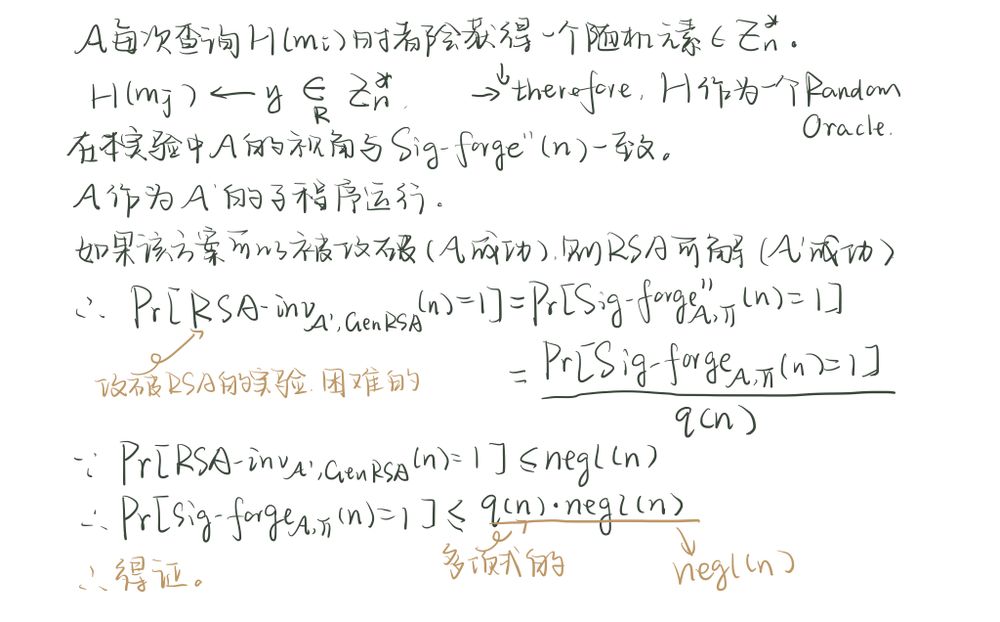 A每次查询H(mi)时都会获得一个随机元素∈Zn*.
H(mj) ← y ∈R Zn*. → therefore, H作为一个Random Oracle.
在本实验中A的视角与Sig-forge''(n)一致。
A作为A'的子程序运行.
如果该方案可以被攻破(A成功),则RSA可解(A'成功)
∴ Pr[RSA-inv_{A',GenRSA}(n)=1]=Pr[Sig-forge''_{A,π}(n)=1]
攻破RSA的实验.困难的
= Pr[Sig-forge_{A,π}(n)=1] / q(n)
∵ Pr[RSA-inv_{A',GenRSA}(n)=1]≤negl(n)
∴ Pr[Sig-forge_{A,π}(n)=1]≤ q(n)·negl(n)
多项式的 negl(n)
∴ 得证。